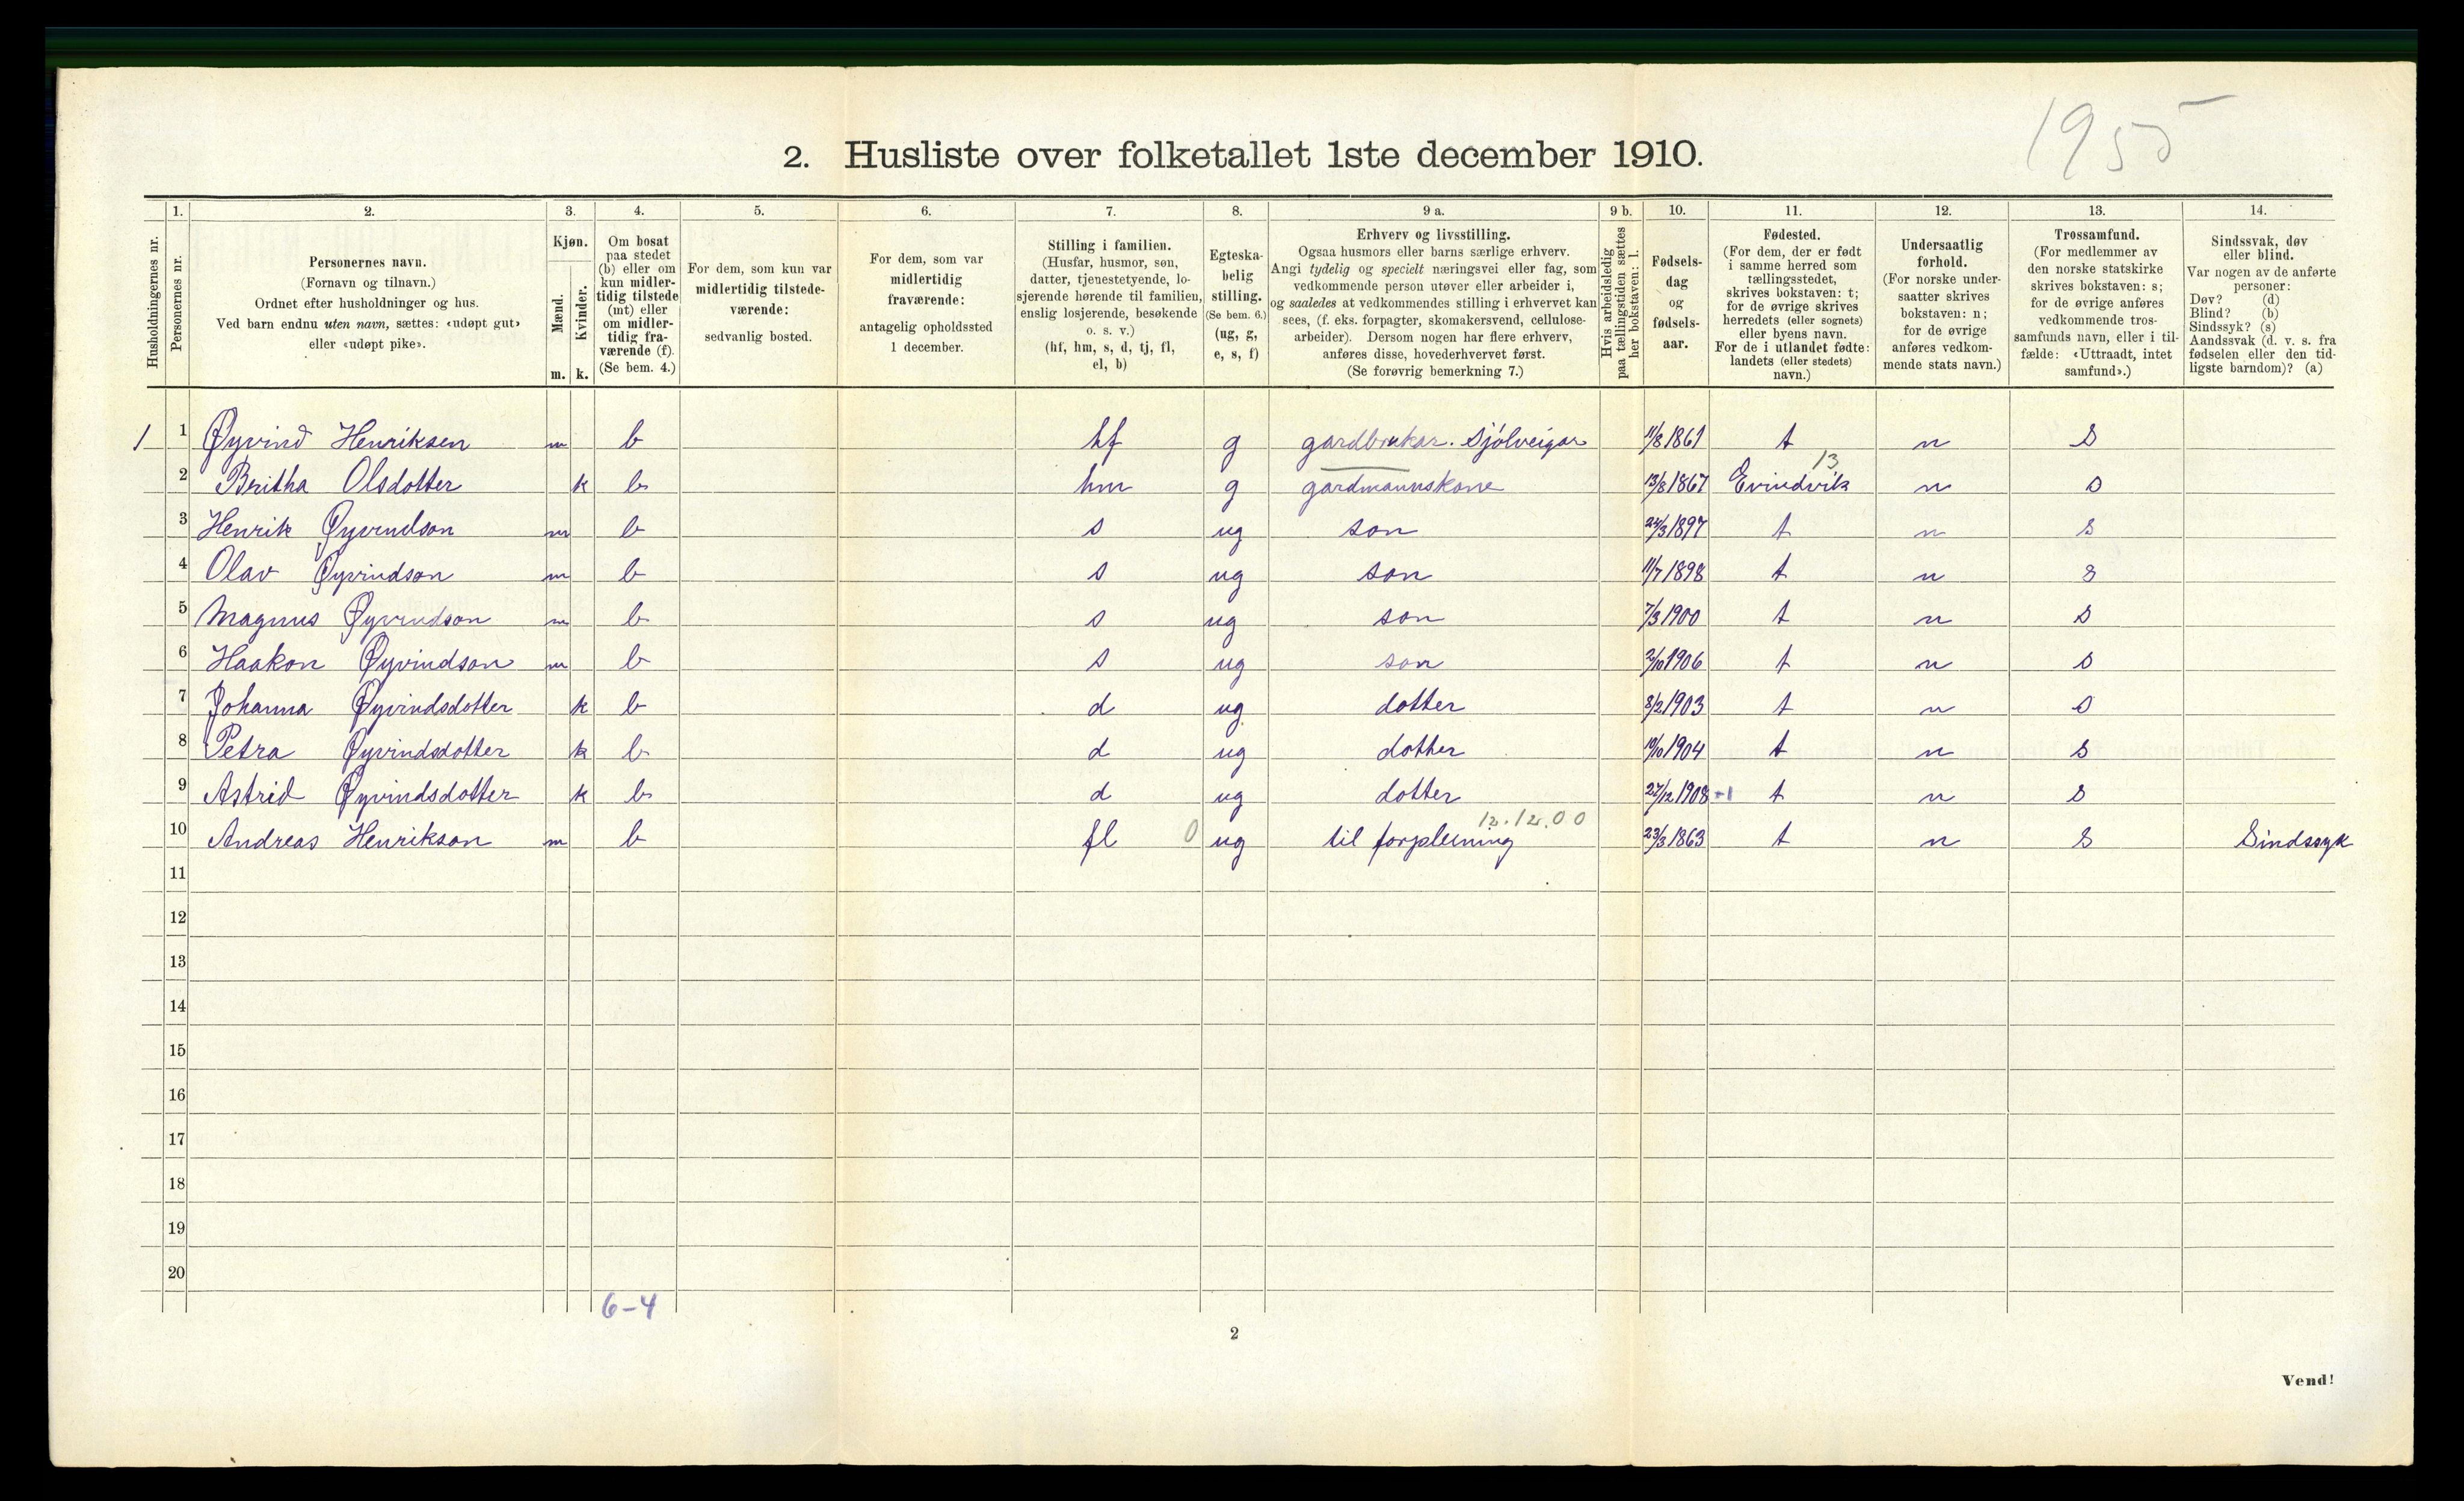 1955
2. Husliste over folketallet 1ste december 1910.
Husholdningernes nr.
1. Personernes nr.
2. Personernes navn. (Fornavn og tilnavn.) Ordnet efter husholdninger og hus. Ved barn endnu uten navn, sættes: «udøpt gut» eller «udøpt pike».
3. Kjøn. Mænd. m. Kvinder. k.
4. Om bosat paa stedet (b) eller om kun midlertidig tilstede (mt) eller om midlertidig fraværende (f). (Se bem. 4.)
5. For dem, som kun var midlertidig tilstedeværende: sedvanlig bosted.
6. For dem, som var midlertidig fraværende: antagelig opholdssted 1 december.
7. Stilling i familien. (Husfar, husmor, søn, datter, tjenestetyende, losjerende hørende til familien, enslig losjerende, besøkende o. s. v.) (hf, hm, s, d, tj, fl, el, b)
8. Egteskabelig stilling. (Se bem. 6.) (ug, g, e, s, f)
9 a. Erhverv og livsstilling. Ogsaa husmors eller barns særlige erhverv. Angi tydelig og specielt næringsvei eller fag, som vedkommende person utøver eller arbeider i, og saaledes at vedkommendes stilling i erhvervet kan sees, (f. eks. forpagter, skomakersvend, cellulosearbeider). Dersom nogen har flere erhverv, anføres disse, hovederhvervet først. (Se forøvrig bemerkning 7.)
9 b. Hvis arbeidsledig paa tællingstiden sættes her bokstaven: l.
10. Fødselsdag og fødselsaar.
11. Fødested. (For dem, der er født i samme herred som tællingsstedet, skrives bokstaven: t; for de øvrige skrives herredets (eller sognets) eller byens navn. For de i utlandet fødte: landets (eller stedets) navn.)
12. Undersaatlig forhold. (For norske undersaatter skrives bokstaven: n; for de øvrige anføres vedkommende stats navn.)
13. Trossamfund. (For medlemmer av den norske statskirke skrives bokstaven: s; for de øvrige anføres vedkommende trossamfunds navn, eller i tilfælde: «Uttraadt, intet samfund».)
14. Sindssvak, døv eller blind. Var nogen av de anførte personer: Døv? (d) Blind? (b) Sindssyk? (s) Aandssvak (d. v. s. fra fødselen eller den tidligste barndom)? (a)
1 1 Øyvind Henriksen m b hf g gardbrukar. Sjølveigar 11/8 1861 t n s
13
2 Britha Olsdotter k b hm g gardmannskone 13/8 1867 Evindvik n s
3 Henrik Øyvindson m b s ug son 24/3 1897 t n s
4 Olav Øyvindson m b s ug son 11/7 1898 t n s
5 Magnus Øyvindson m b s ug son 7/3 1900 t n s
6 Haakon Øyvindson m b s ug son 2/10 1906 t n s
7 Johanna Øyvindsdotter k b d ug dotter 8/2 1903 t n s
8 Petra Øyvindsdotter k b d ug dotter 10/10 1904 t n s
9 Astrid Øyvindsdotter k b d ug dotter 27/12 1908 -1 t n s
12.12.00
10 Andreas Henrikson m b fl 0 ug til forpleining 23/3 1863 t n s Sindssyk
11
12
13
14
15
16
17
18
19
20
6-4
2
Vend!